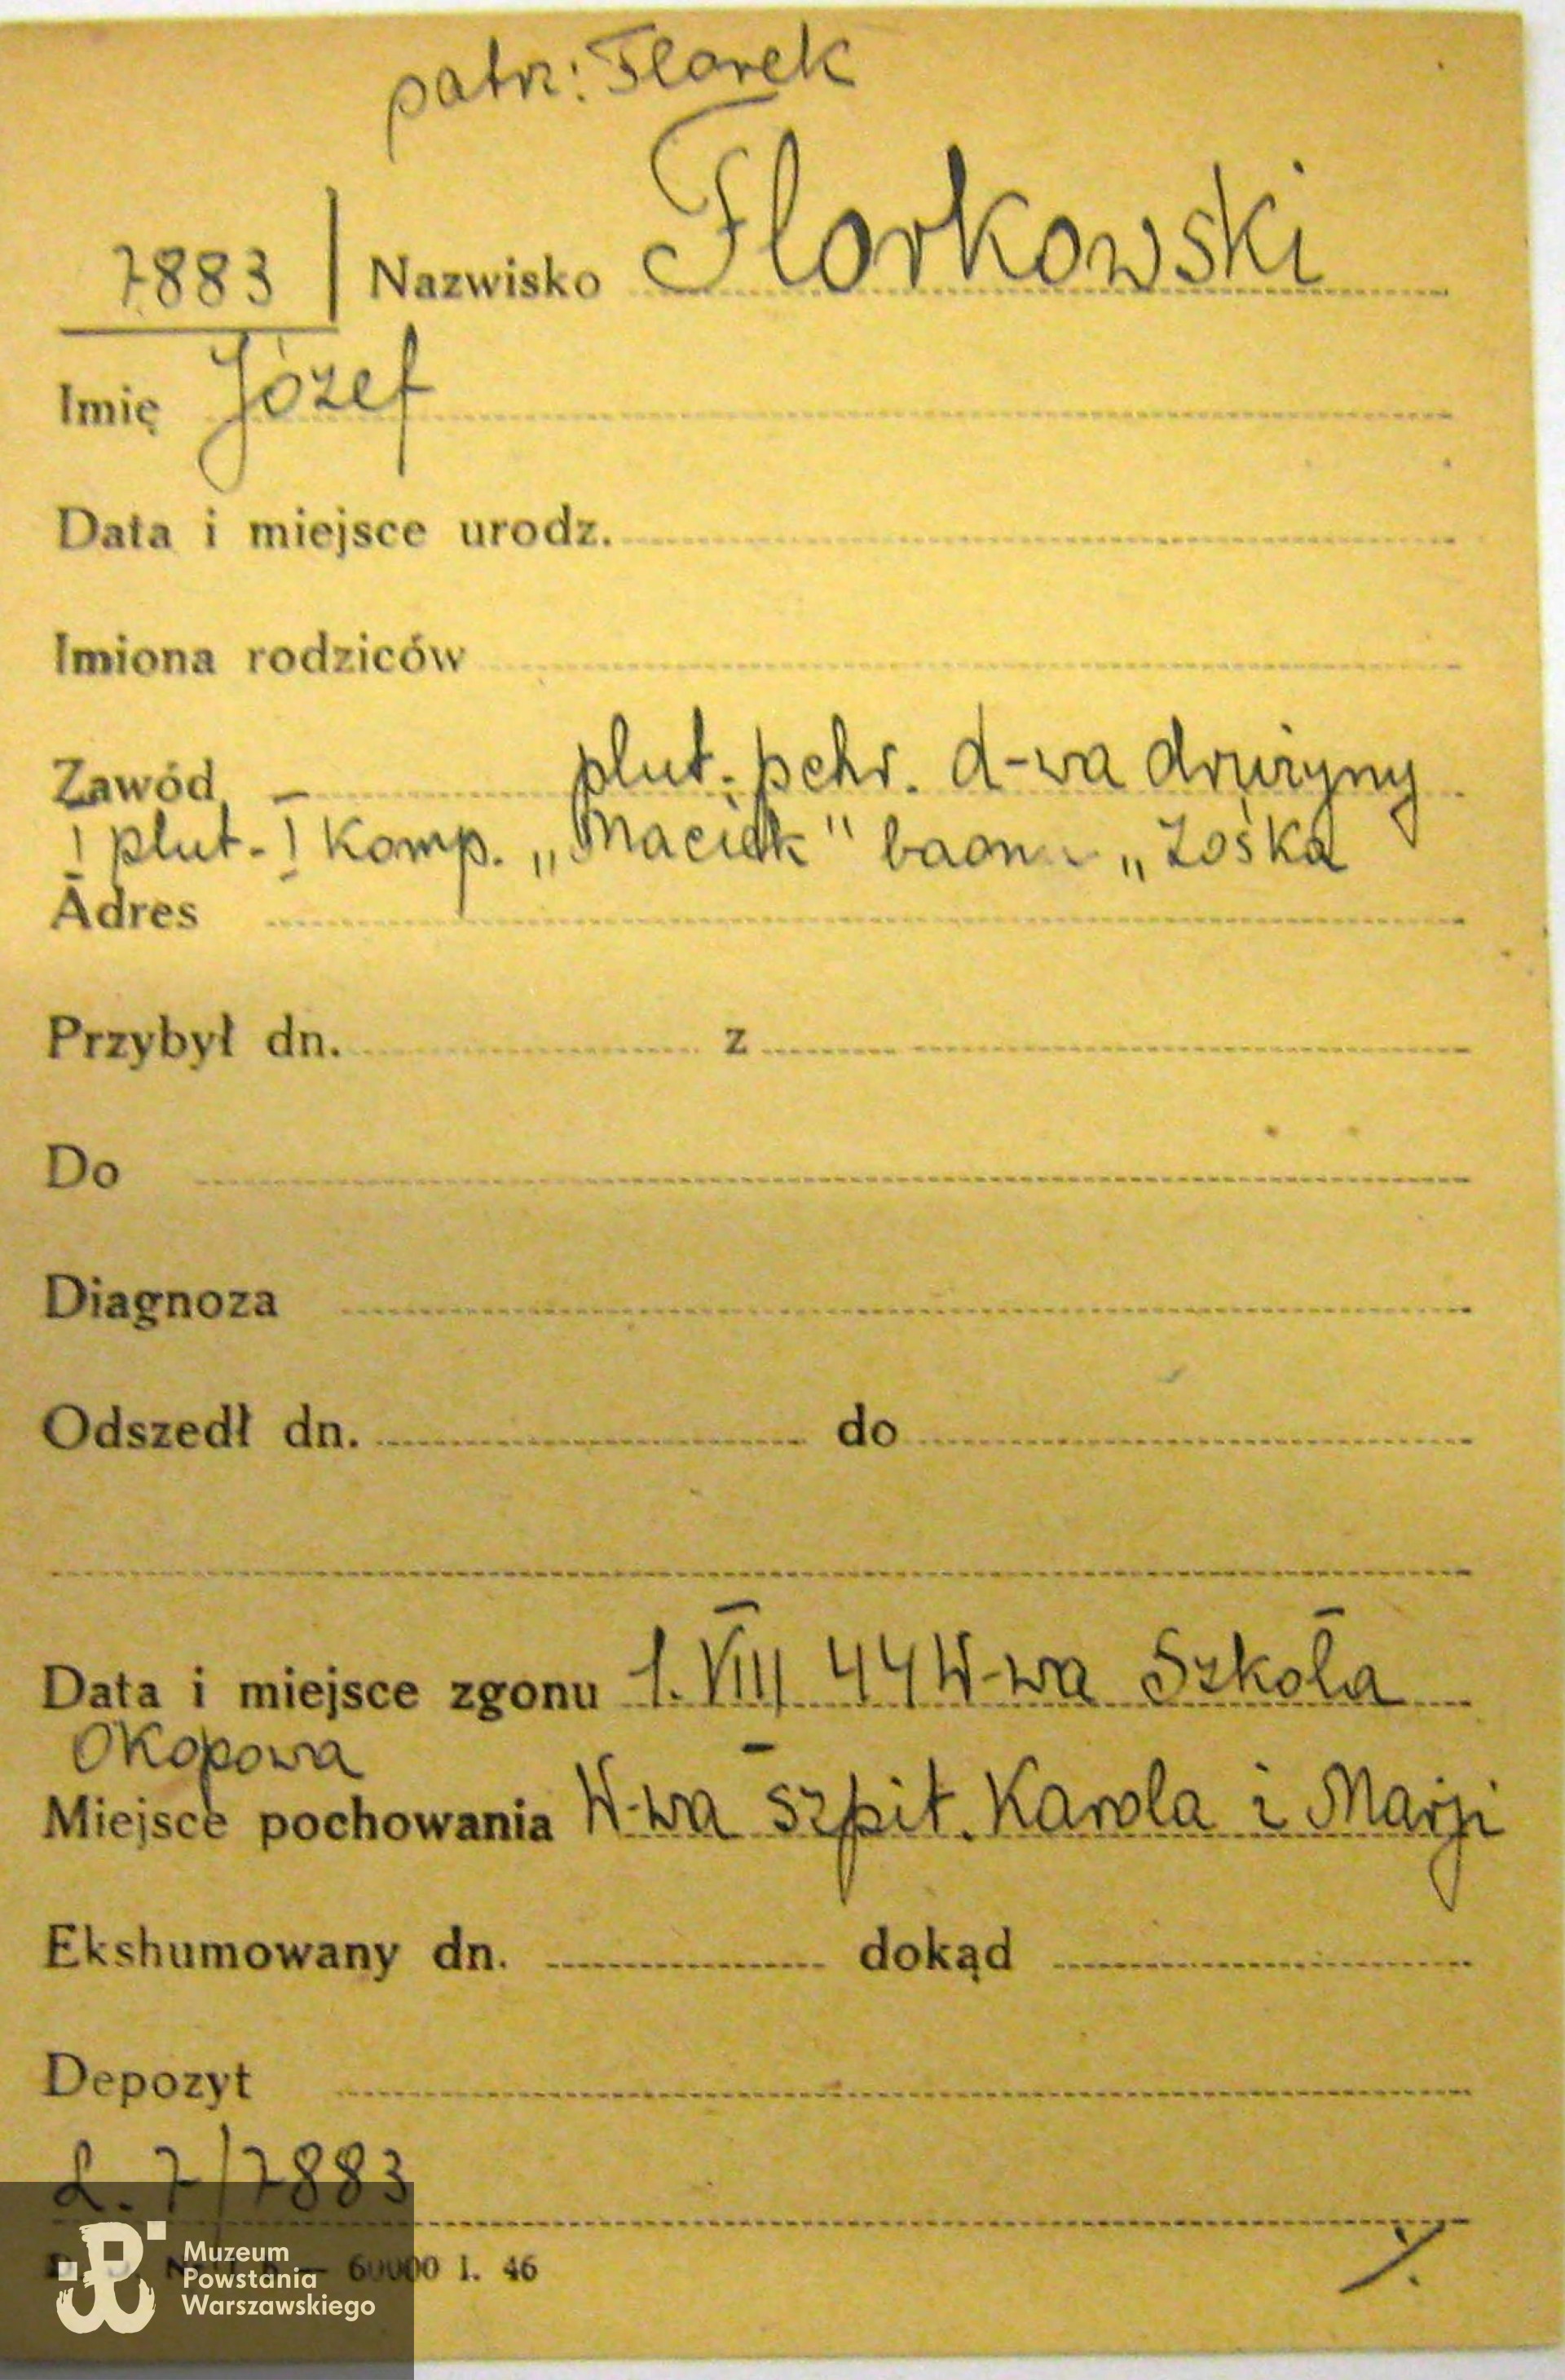 patrz: Florek
7883 Nazwisko Florkowski
Imię Józef
Data i miejsce urodz.
Imiona rodziców
Zawód plut. pchr. d-wa drużyny
I plut. I komp. „Maciek" baonu „Zośka
Adres
Przybył dn. z
Do
Diagnoza
Odszedł dn. do
Data i miejsce zgonu 1. VIII 44 W-wa Szkoła
Okopowa
Miejsce pochowania W-wa szpit. Karola i Marji
Ekshumowany dn. dokąd
Depozyt
L. 7/7883
60000 I. 46
Muzeum
Powstania
Warszawskiego